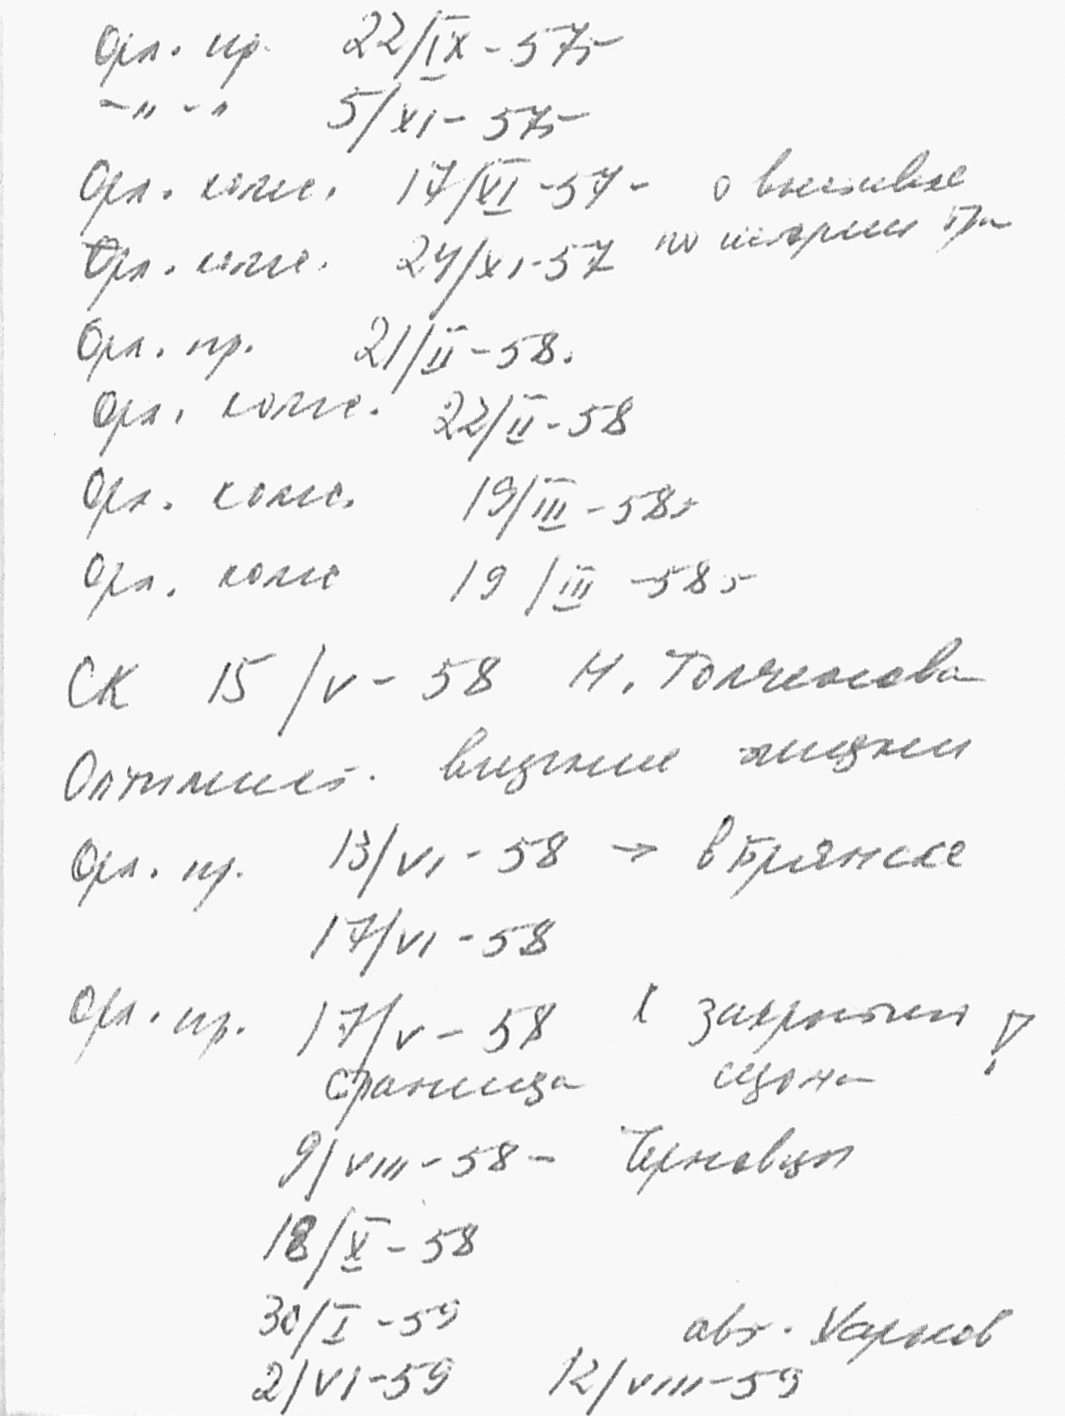 Орл. пр. 22/IX - 57г
-"- " 5/XI - 57г
Орл. комс. 17/VI - 57 - о выставке
Орл. комс. 24/XI - 57 по истории
Орл. пр. 21/II - 58.
Орл. комс. 22/II - 58
Орл. комс. 19/III - 58г
Орл. комс 19/III - 58г
СК 15/V - 58 Н. Толченова
Оптимист.
Орл. пр. 13/VI - 58 → в Брянске
17/VI - 58
Орл. пр. 17/V - 58 К закрытию !
страница сезона
9/VIII - 58 - Черновцы
18/X - 58
30/I - 59 авт. Харьков
2/VI - 59 12/VIII - 59